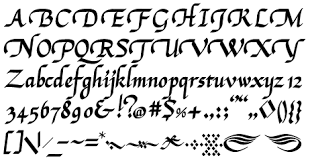 ABCDEFGHIJKLM
NOPQRSTUVWXY
Zabcdefghijklmnopqrstuvwxyz12
34567890&!?@#$%+.,:;‘“’”,()[]{}
[]\/_-~=*